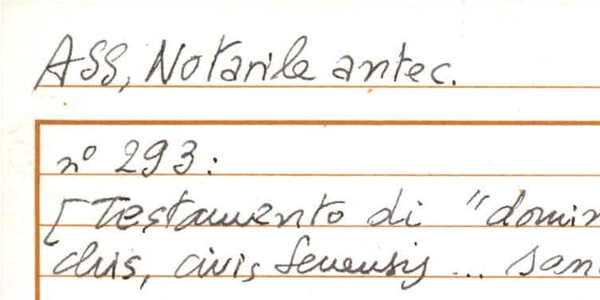 ASS, Notarile antec.
nº 293:
[Testamento di "domin
chis, civis senensis ... san